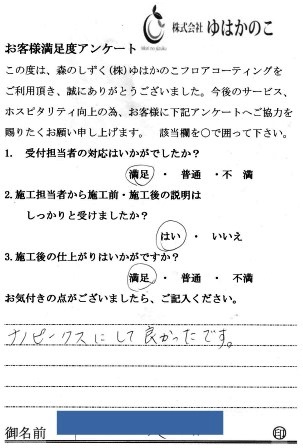 株式会社 ゆはかのこ
お客様満足度アンケート
この度は、森のしずく(株)ゆはかのこフロアコーティングを
ご利用頂き、誠にありがとうございました。今後のサービス、
ホスピタリティ向上の為、お客様に下記アンケートへご協力を
賜りたくお願い申し上げます。 該当欄を○で囲って下さい。
1. 受付担当者の対応はいかがでしたか?
満足 ・ 普通 ・ 不 満
2.施工担当者から施工前・施工後の説明は
しっかりと受けましたか?
はい ・ いいえ
3.施工後の仕上がりはいかがですか?
満足 ・ 普通 ・ 不満
お気付きの点がございましたら、ご記入ください。
ナノピークスにして良かったです。
御名前 ㊞